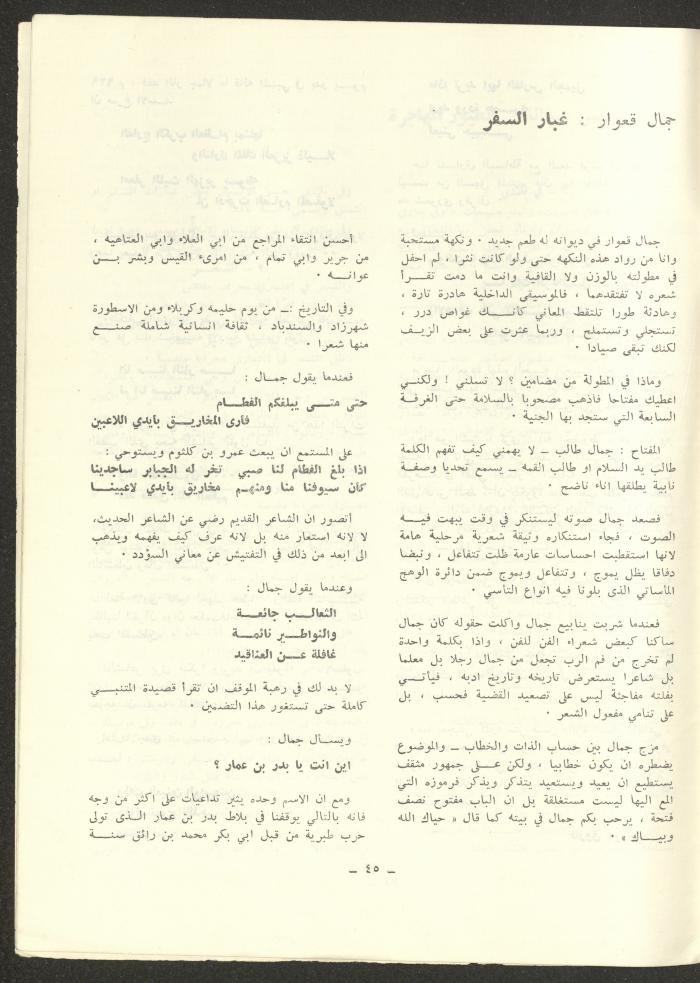 جمال قعوار : غبار السفر
جمال قعوار في ديوانه له طعم جديد . ونكهة مستحبة
وانا من رواد هذه النكهه حتى ولو كانت نثرا ، لم احفل
في مطولته بالوزن ولا القافية وانت ما دمت تقرأ
شعره لا تفتقدهما ، فالموسيقى الداخلية هادرة تارة ،
وهادئة طورا تلتقط المعاني كأنك غواص درر ،
تستجلي وتستملح ، وربما عثرت على بعض الزيف
لكنك تبقى صيادا .
وماذا في المطولة من مضامين ؟ لا تسلني ! ولكني
اعطيك مفتاحا فاذهب مصحوبا بالسلامة حتى الغرفة
السابعة التي ستجد بها الجنية .
المفتاح : جمال طالب – لا يهمني كيف تفهم الكلمة
طالب يد السلام او طالب القمه – يسمع تحديا وصفة
نابية يطلقها اناء ناضح .
فصعد جمال صوته ليستنكر في وقت يبهت فيه
الصوت ، فجاء استنكاره وثيقة شعرية مرحلية هامة
لانها استقطبت احساسات عارمة ظلت تتفاعل ، ونبضا
دفاقا يظل يموج ، وتتفاعل ويموج ضمن دائرة الوهج
المأساتي الذى بلونا فيه انواع التأسي .
فعندما شربت ينابيع جمال واكلت حقوله كان جمال
ساكنا كبعض شعراء الفن للفن ، واذا بكلمة واحدة
لم تخرج من فم الرب تجعل من جمال رجلا بل معلما
بل شاعرا يستعرض تاريخه وتاريخ ادبه ، فيأتي
بفلته مفاجئة ليس على تصعيد القضية فحسب ، بل
على تنامي مفعول الشعر .
مزج جمال بين حساب الذات والخطاب – والموضوع
يضطره ان يكون خطابيا ، ولكن على جمهور مثقف
يستطيع ان يعيد ويستعيد يتذكر ويذكر فرموزه التي
المع اليها ليست مستغلقة بل ان الباب مفتوح نصف
فتحة ، يرحب بكم جمال في بيته كما قال « حياك الله
وبياك » .
أحسن انتقاء المراجع من ابي العلاء وابي العتاهيه ،
من جرير وابي تمام ، من امرىء القيس وبشر بن
عوانه .
وفي التاريخ :– من يوم حليمه وكربلاء ومن الاسطورة
شهرزاد والسندباد ، ثقافة انسانية شاملة صنع
منها شعرا .
فعندما يقول جمال :
حتى متى يبلغكم الفطام
فأرى المخاريق بأيدي اللاعبين
على المستمع ان يبعث عمرو بن كلثوم ويستوحي :
اذا بلغ الفطام لنا صبي تخر له الجبابر ساجدينا
كأن سيوفنا منا ومنهم مخاريق بأيدي لاعبينا
أتصور ان الشاعر القديم رضي عن الشاعر الحديث،
لا لانه استعار منه بل لانه عرف كيف يفهمه ويذهب
الى ابعد من ذلك في التفتيش عن معاني السؤدد .
وعندما يقول جمال :
الثعالب جائعة
والنواطير نائمة
غافلة عن العناقيد
لا بد لك في رهبة الموقف ان تقرأ قصيدة المتنبي
كاملة حتى تستغور هذا التضمين .
ويسأل جمال :
اين انت يا بدر بن عمار ؟
ومع ان الاسم وحده يثير تداعيات على اكثر من وجه
فانه بالتالي يوقفنا في بلاط بدر بن عمار الذى تولى
حرب طبرية من قبل ابي بكر محمد بن رائق سنة
– ٤٥ –